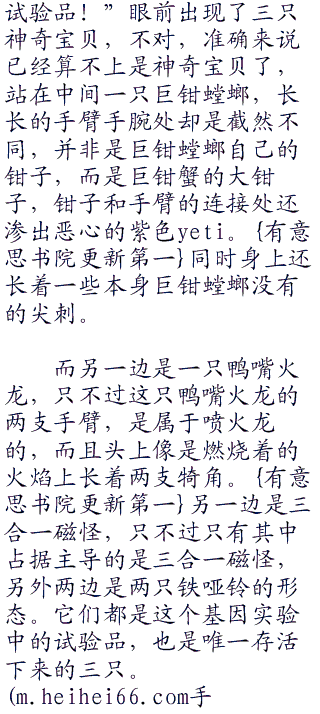 试验品！”眼前出现了三只
神奇宝贝，不对，准确来说
已经算不上是神奇宝贝了，
站在中间一只巨钳螳螂，长
长的手臂手腕处却是截然不
同，并非是巨钳螳螂自己的
钳子，而是巨钳蟹的大钳
子，钳子和手臂的连接处还
渗出恶心的紫色yeti。{有意
思书院更新第一}同时身上还
长着一些本身巨钳螳螂没有
的尖刺。
而另一边是一只鸭嘴火
龙，只不过这只鸭嘴火龙的
两支手臂，是属于喷火龙
的，而且头上像是燃烧着的
火焰上长着两支犄角。{有意
思书院更新第一}另一边是三
合一磁怪，只不过只有其中
占据主导的是三合一磁怪，
另外两边是两只铁哑铃的形
态。它们都是这个基因实验
中的试验品，也是唯一存活
下来的三只。
(m.heihei66.com手